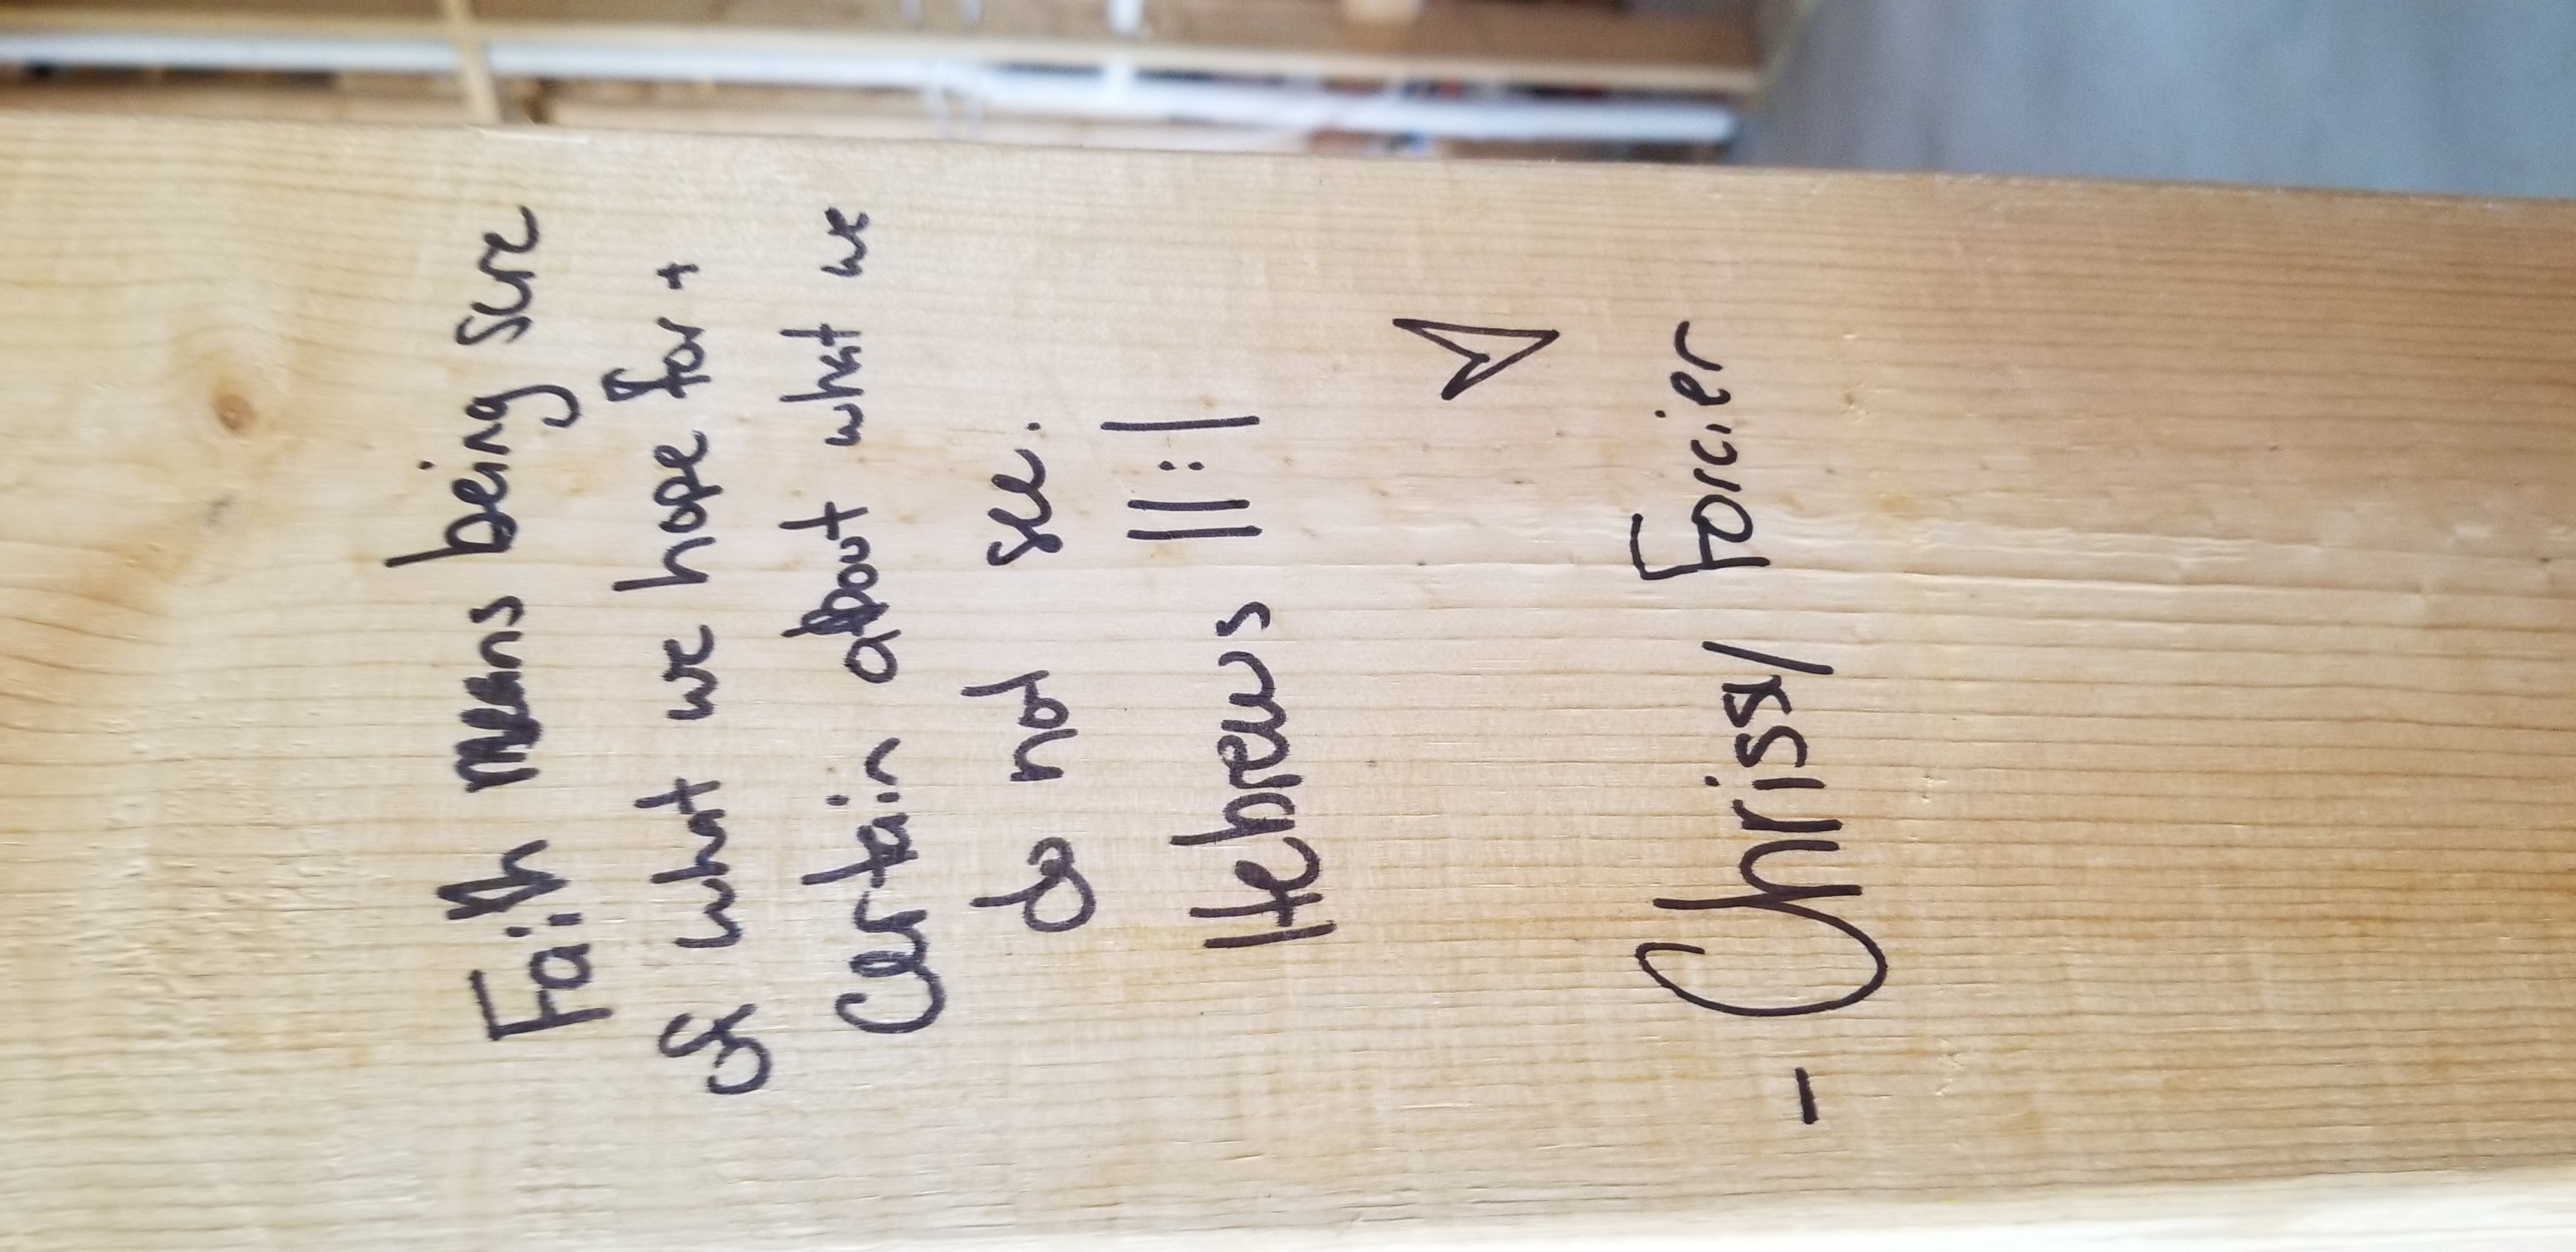 Faith means being sure
of what we hope for +
Certain about what we
do not see.
Hebrews 11:1
- Chrissy Forcier